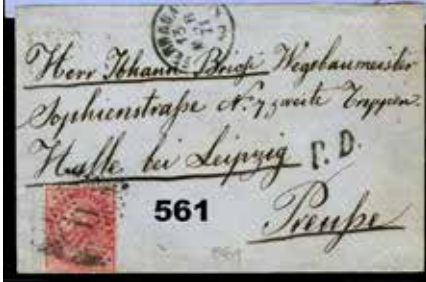 Herr Johann Wegebaumeister
Sophienstraße N. 7 zweite Treppen.
Halle bei Leipzig
P. D.
561
Preuße
11